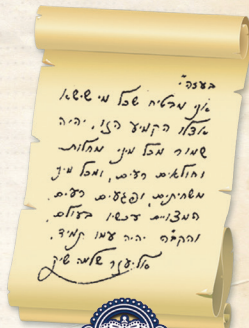 בעזה"י
אני מבטיח שכל מי שישא
אצלו הקמיע הזו, יהיה
שמור מכל מיני מחלות
וחולאים רעים, ומכל מין
משחיתים, ופגעים רעים
המצויים עכשיו בעולם
והקב"ה יהיה עמו תמיד.
אליעזר שלמה שיק